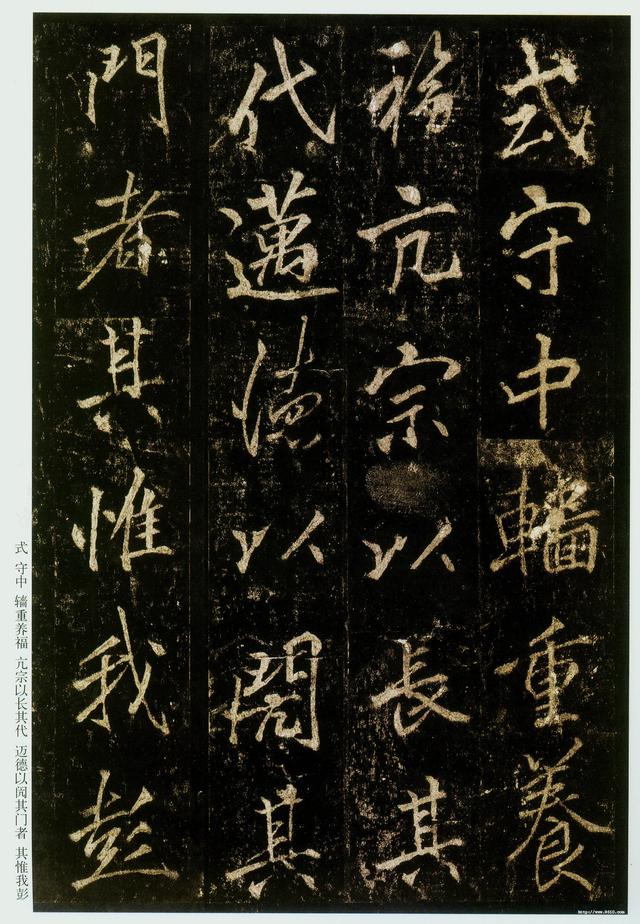 式守中轖重養
福亢宗以長其
代邁德以闊其
門者其惟我彭
式 守中 轖重养福 亢宗以长其代 迈德以阔其门者 其惟我彭
http://www.9610.com